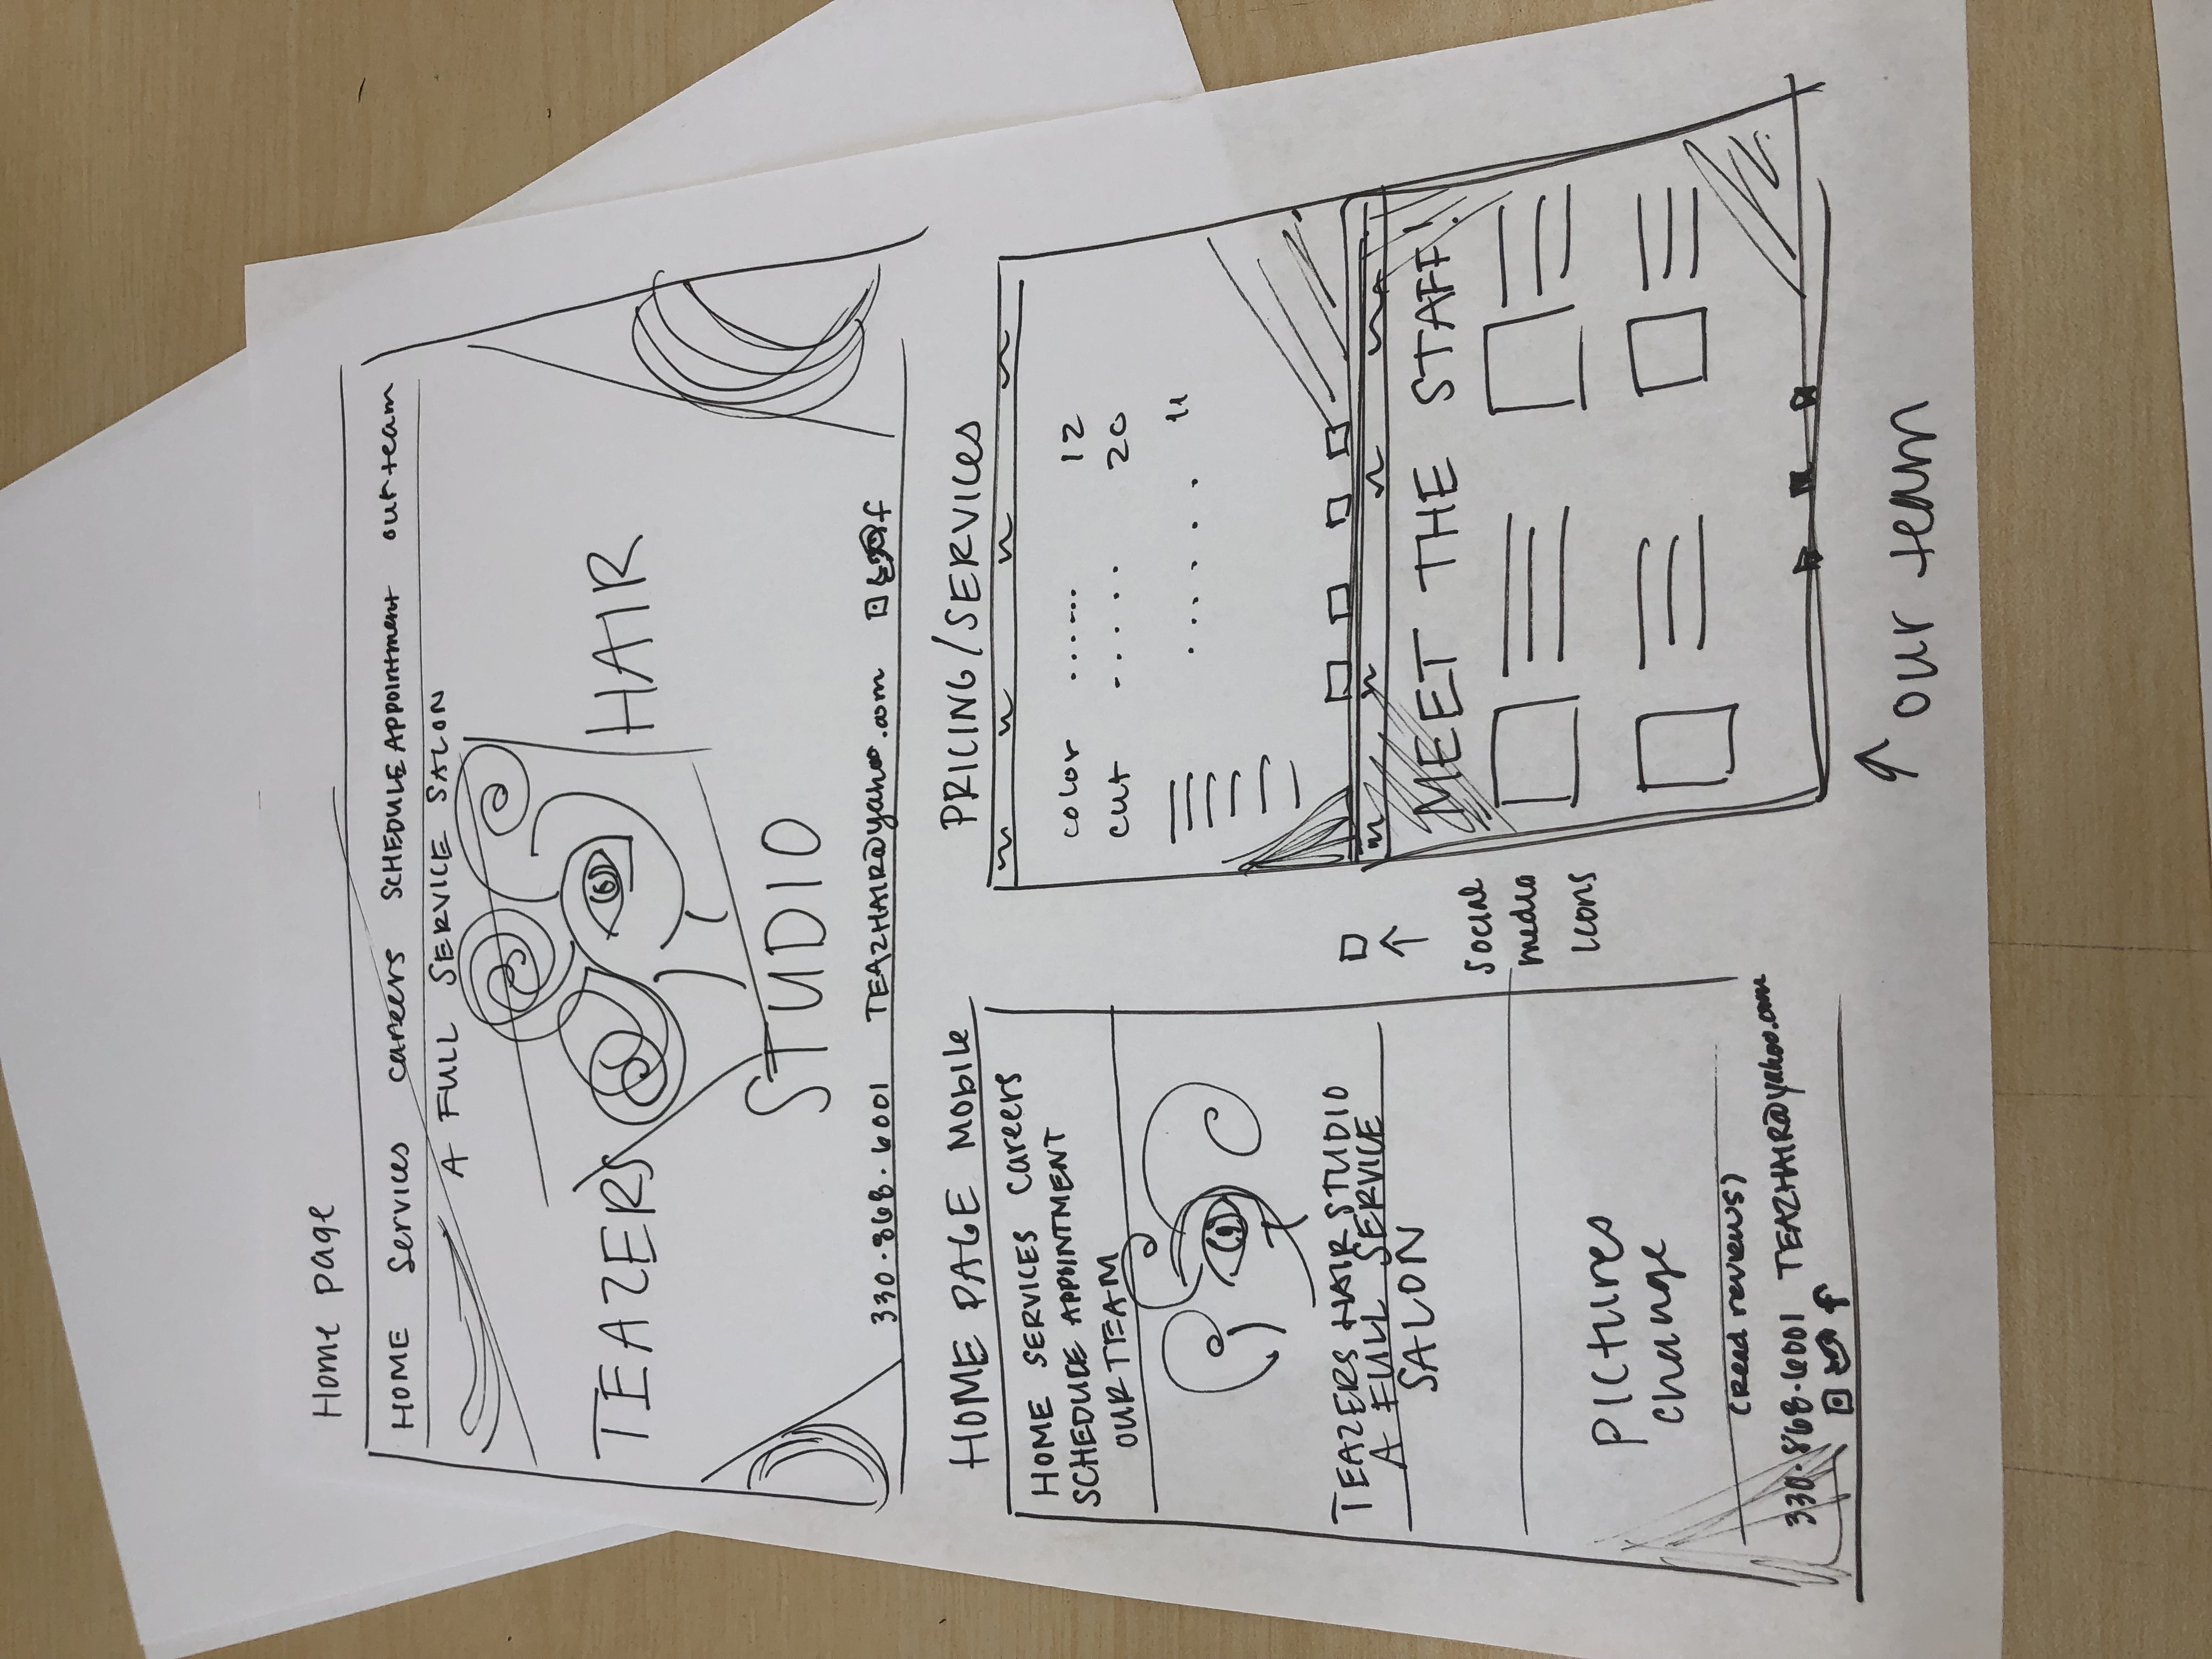 Home page
HOME Services careers SCHEDULE Appointment our team
A FULL SERVICE SALON
TEAZERS HAIR
STUDIO
330.868.6001 TEAZHAIR@yahoo.com f
HOME PAGE Mobile
HOME SERVICES Careers
SCHEDULE APPOINTMENT
OUR TEAM
TEAZERS HAIR STUDIO
A FULL SERVICE
SALON
Pictures
change
(Read reviews)
330.868.6001 TEAZHAIR@yahoo.com
f
social
media
icons
PRICING/SERVICES
color ...... 12
cut ..... 20
...... "
MEET THE STAFF!
our team